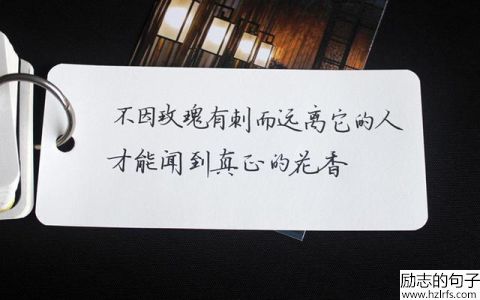 不因玫瑰有刺而远离它的人
才能闻到真正的花香
励志的句子
www.hzlrfs.com